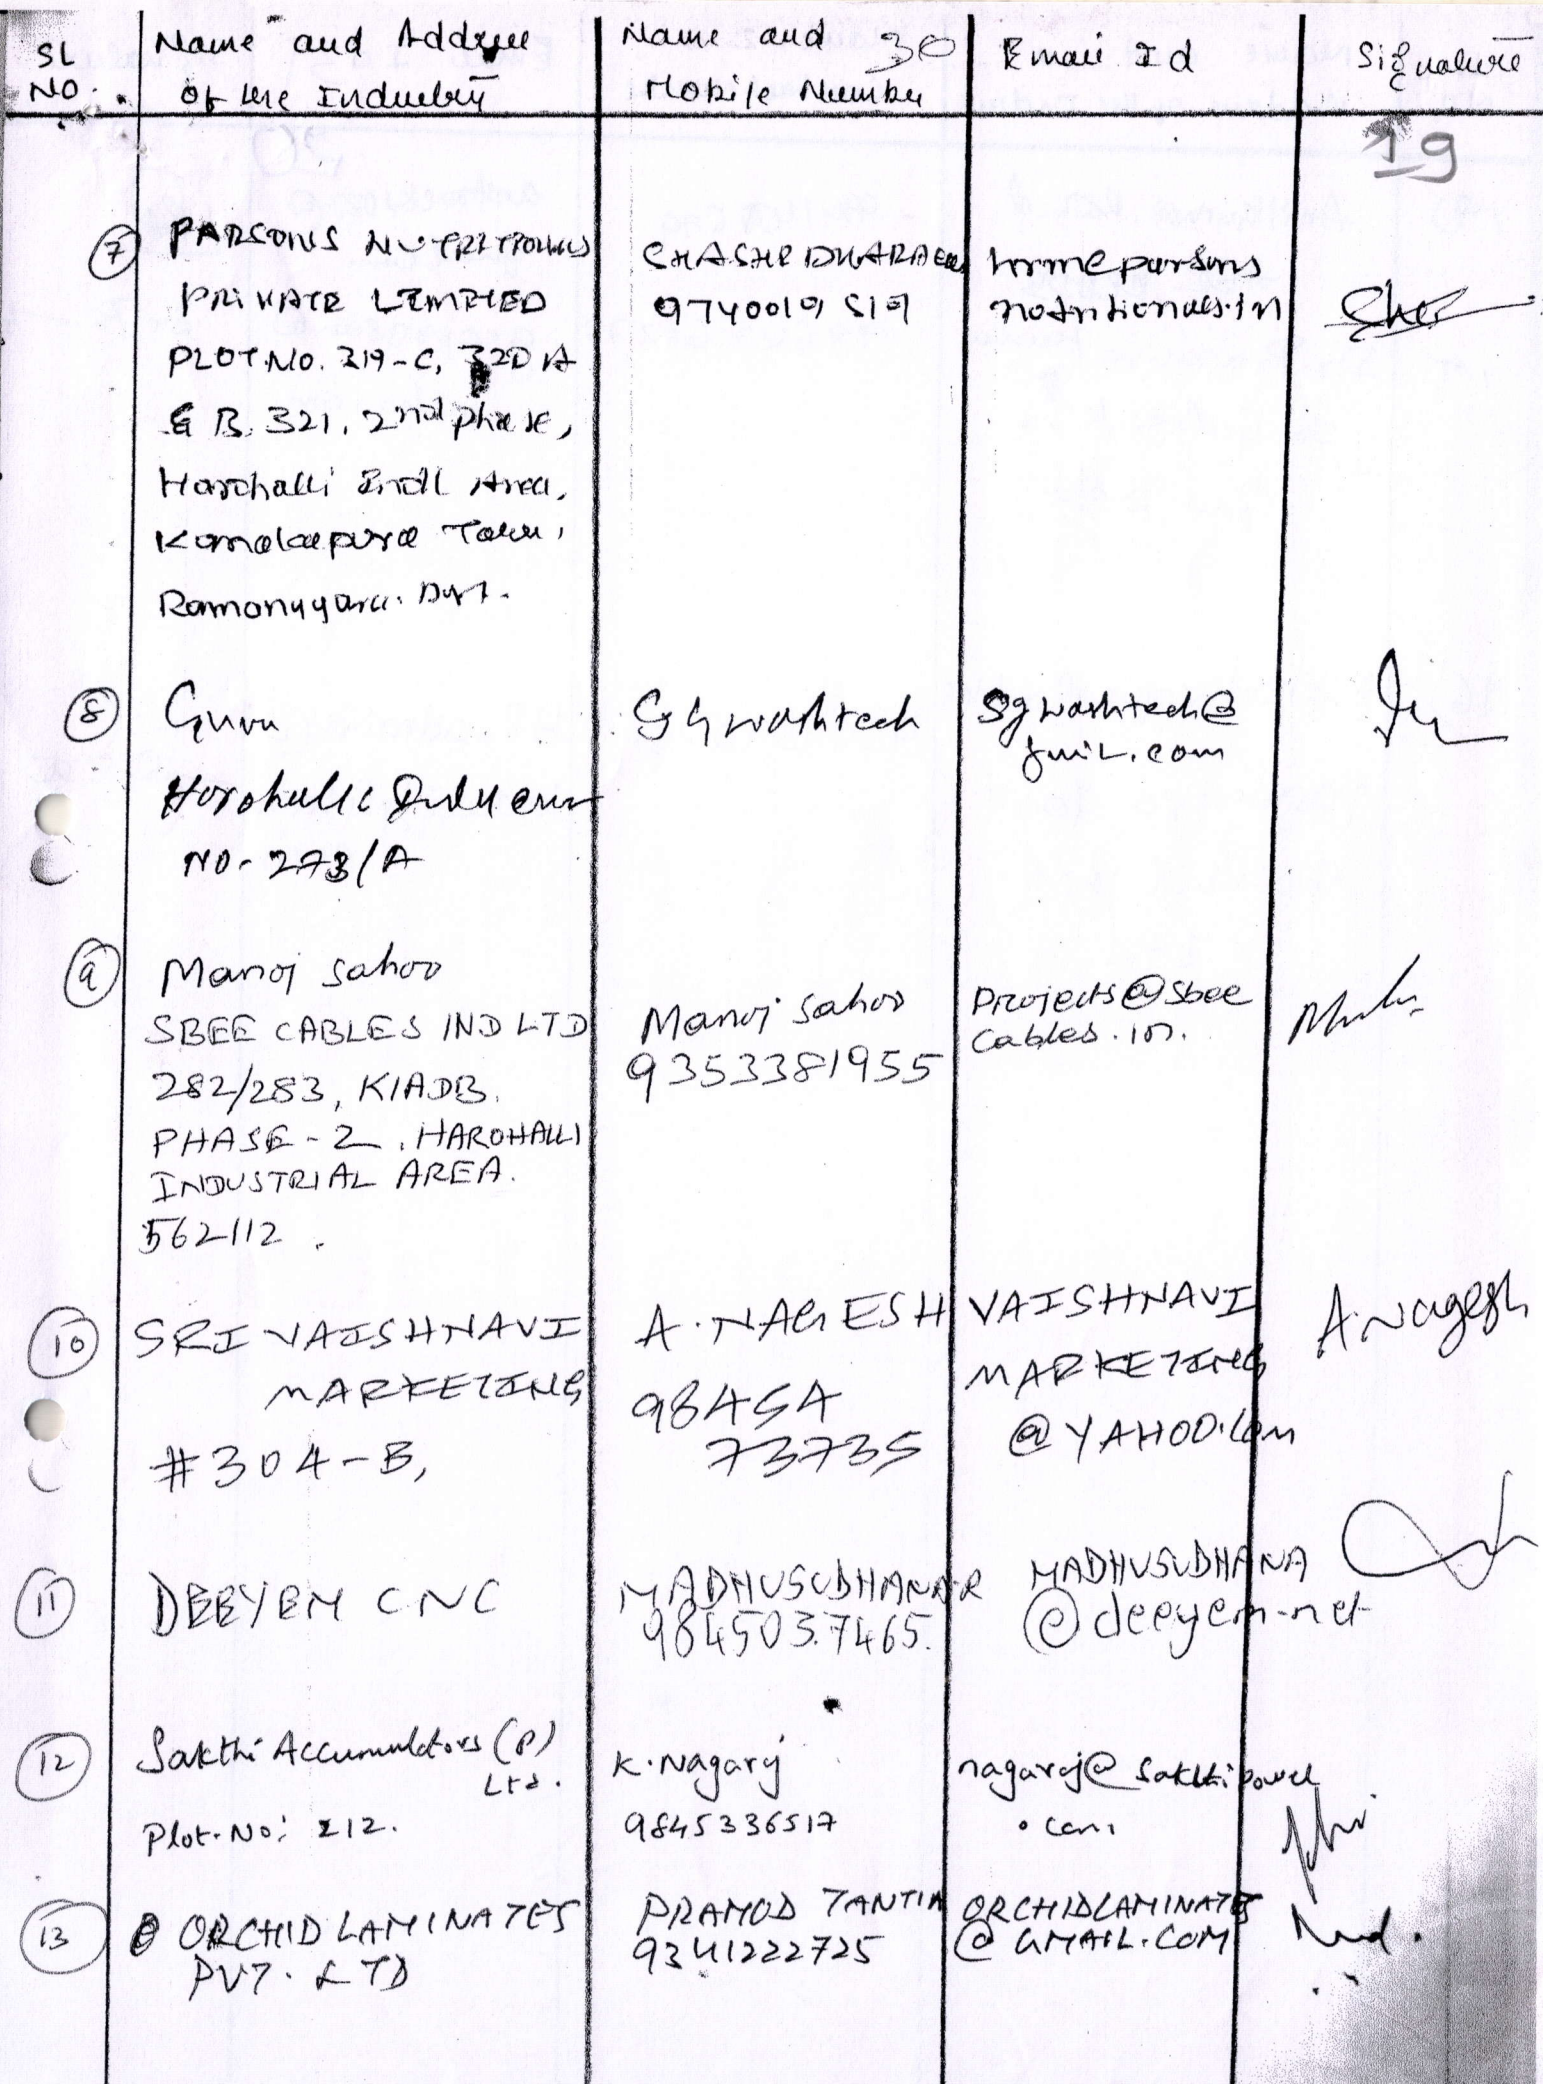 SL NO.
Name and Address of the Industry
Name and Mobile Number
30
Email Id
Signature
19
7
PARSONS NUTRITIONALS
PRIVATE LIMITED
PLOT.NO. 319-C, 320 A
& B, 321, 2nd phase,
Harohalli Indl Area,
Ramanagara. Dist.
SHASHIDHARA
9740019519
parsons
nutritionals.in
8
Guru
Harohalli
NO- 273/A
SG washtech
sgwashtech@
gmil.com
9
Manoj Sahoo
SBEE CABLES IND LTD
282/283, KIADB.
PHASE-2, HAROHALLI
INDUSTRIAL AREA.
562112.
Manoj Sahoo
9353381955
Projects@sbee
cables.in.
10
SRI VAISHNAVI
MARKETING
#304-B,
A. NAGESH
98454
73735
VAISHNAVI
MARKETING
@YAHOO.COM
A.Nagesh
11
DEEYEM CNC
MADHUSUDHANA.R
9845037465.
MADHUSUDHANA
@deeyem.net
12
Sakthi Accumulators (P)
Ltd.
Plot.No: 212.
K.Nagaraj
9845336517
nagaraj@sakthipower
.com
13
ORCHID LAMINATES
PVT. LTD
PRAMOD TANTIA
9341222725
ORCHIDLAMINATES
@GMAIL.COM